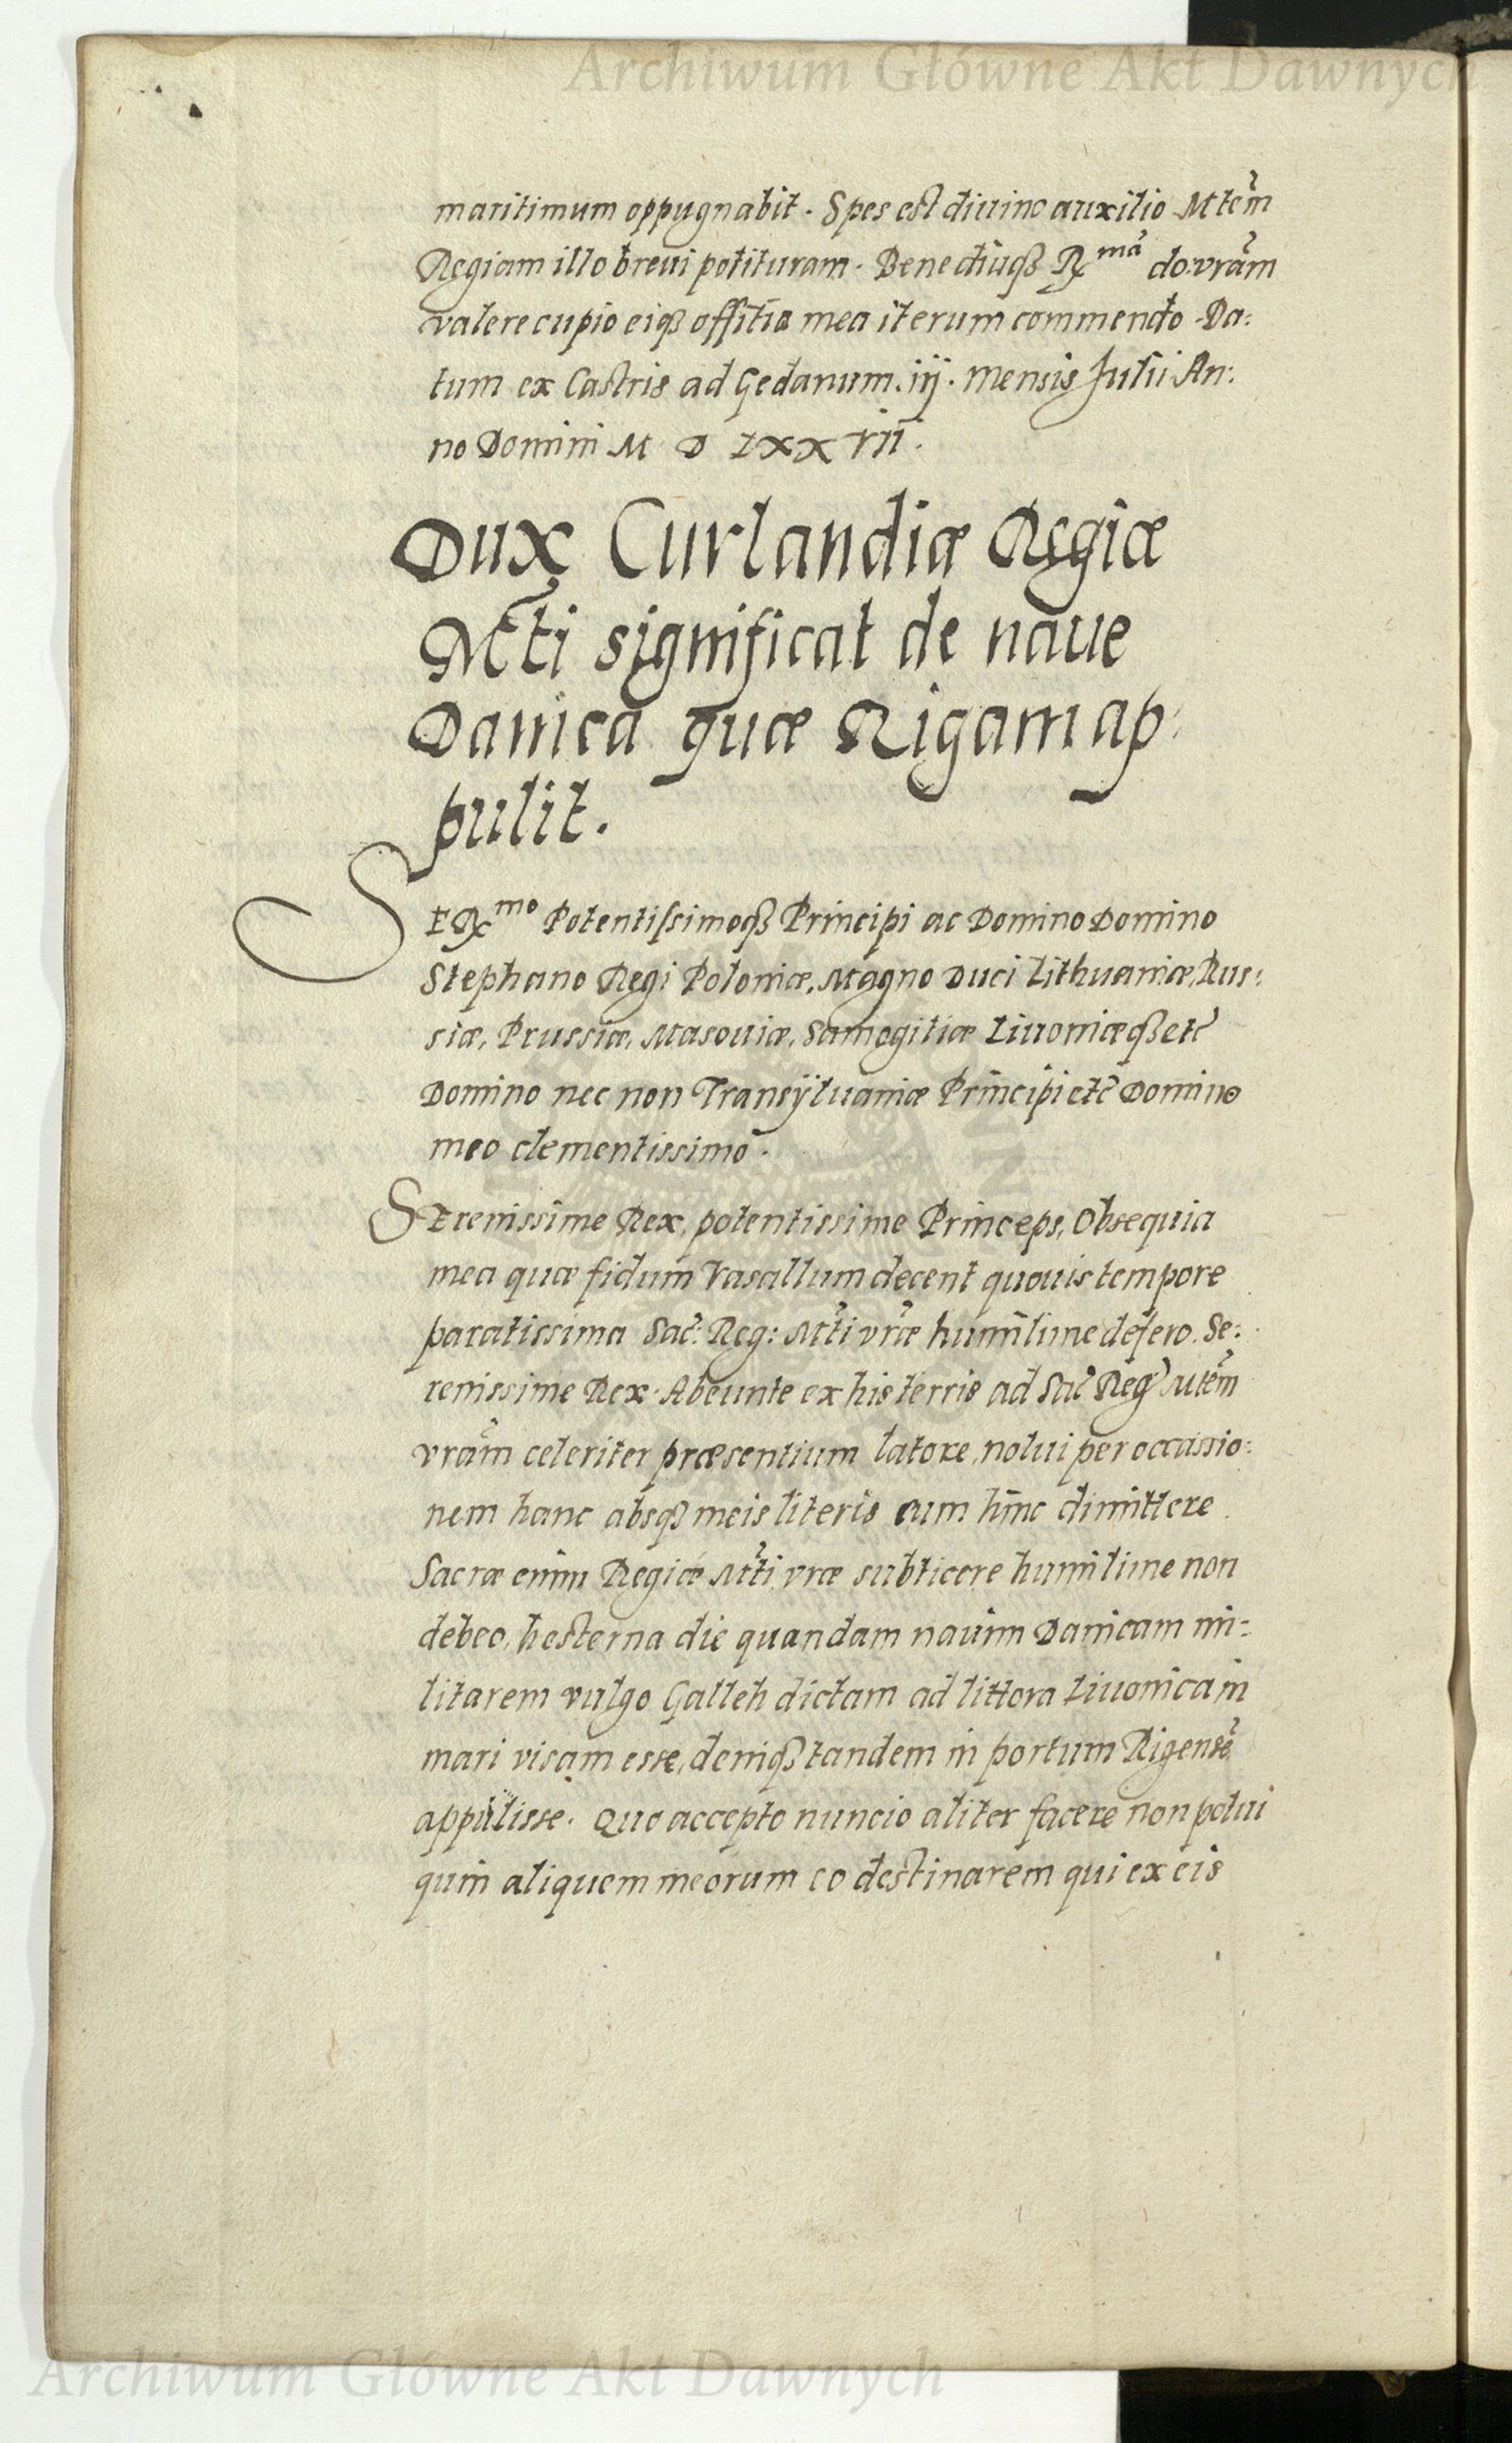 Archiwum Główne Akt Dawnych
maritimum oppugnabit. Spes est diuino auxilio Mtem̃
Regiam illo breui potituram. Bene diuq₃ R^mã do: vrãm
valere cupio eiq₃ offitia mea iterum commendo. Da:
tum ex Castris ad Gedanum. iij. Mensis Julii An:
no Domini M D LXXVII.
Dux Curlandiæ Regiæ
Mti significat de naue
Danica quæ Rigam ap:
pulit.
SER^mo Potentissimoq₃ Principi ac Domino Domino
Stephano Regi Poloniæ, Magno Duci Lithuaniæ, Rus:
siæ, Prussiæ, Masouiæ, Samogitiæ Liuoniæq₃ etc̃
Domino nec non Transÿluaniæ Principi etc̃ Domino
meo clementissimo.
SErenissime Rex, potentissime Princeps, Obsequia
mea quæ fidum Vasallum decent quouis tempore
paratissima Sac̃: Reg: Mti vræ humilime defero. Se:
renissime Rex. Abeunte ex his terris ad Sac̃ Reg̃ Mtem̃
vrãm celeriter præsentium latore, nolui per occassio:
nem hanc absq₃ meis literis eum hinc dimittere.
Sacræ enim Regiæ Mti vræ subticere humilime non
debeo, hesterna die quandam nauim Danicam mi:
litarem vulgo Galleh dictam ad littora Liuonica in
mari visam esse, deniq₃ tandem in portum Rigensẽ
appulisse. Quo accepto nuncio aliter facere non potui
quin aliquem meorum eo destinarem qui ex eis
Archiwum Główne Akt Dawnych